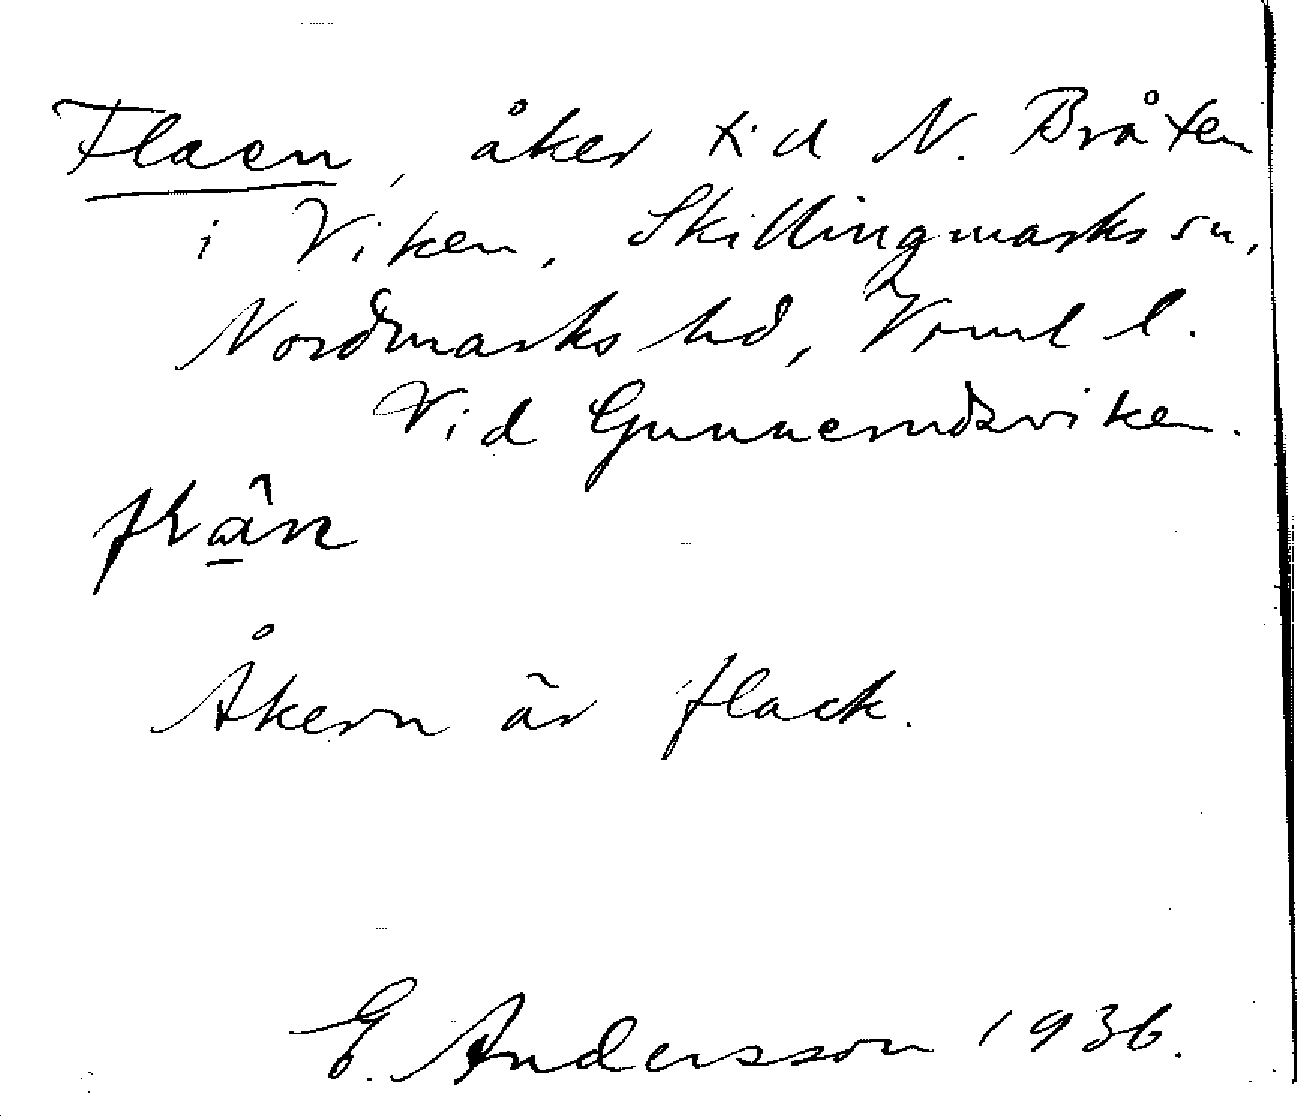 Flaen, åker t.d N. Bråten
i Viken, Skillingmarks sn,
Nordmarks hd, Vrml l.
Vid Gunnerudsviken.
Åkern är flack.
E. Andersson 1936.